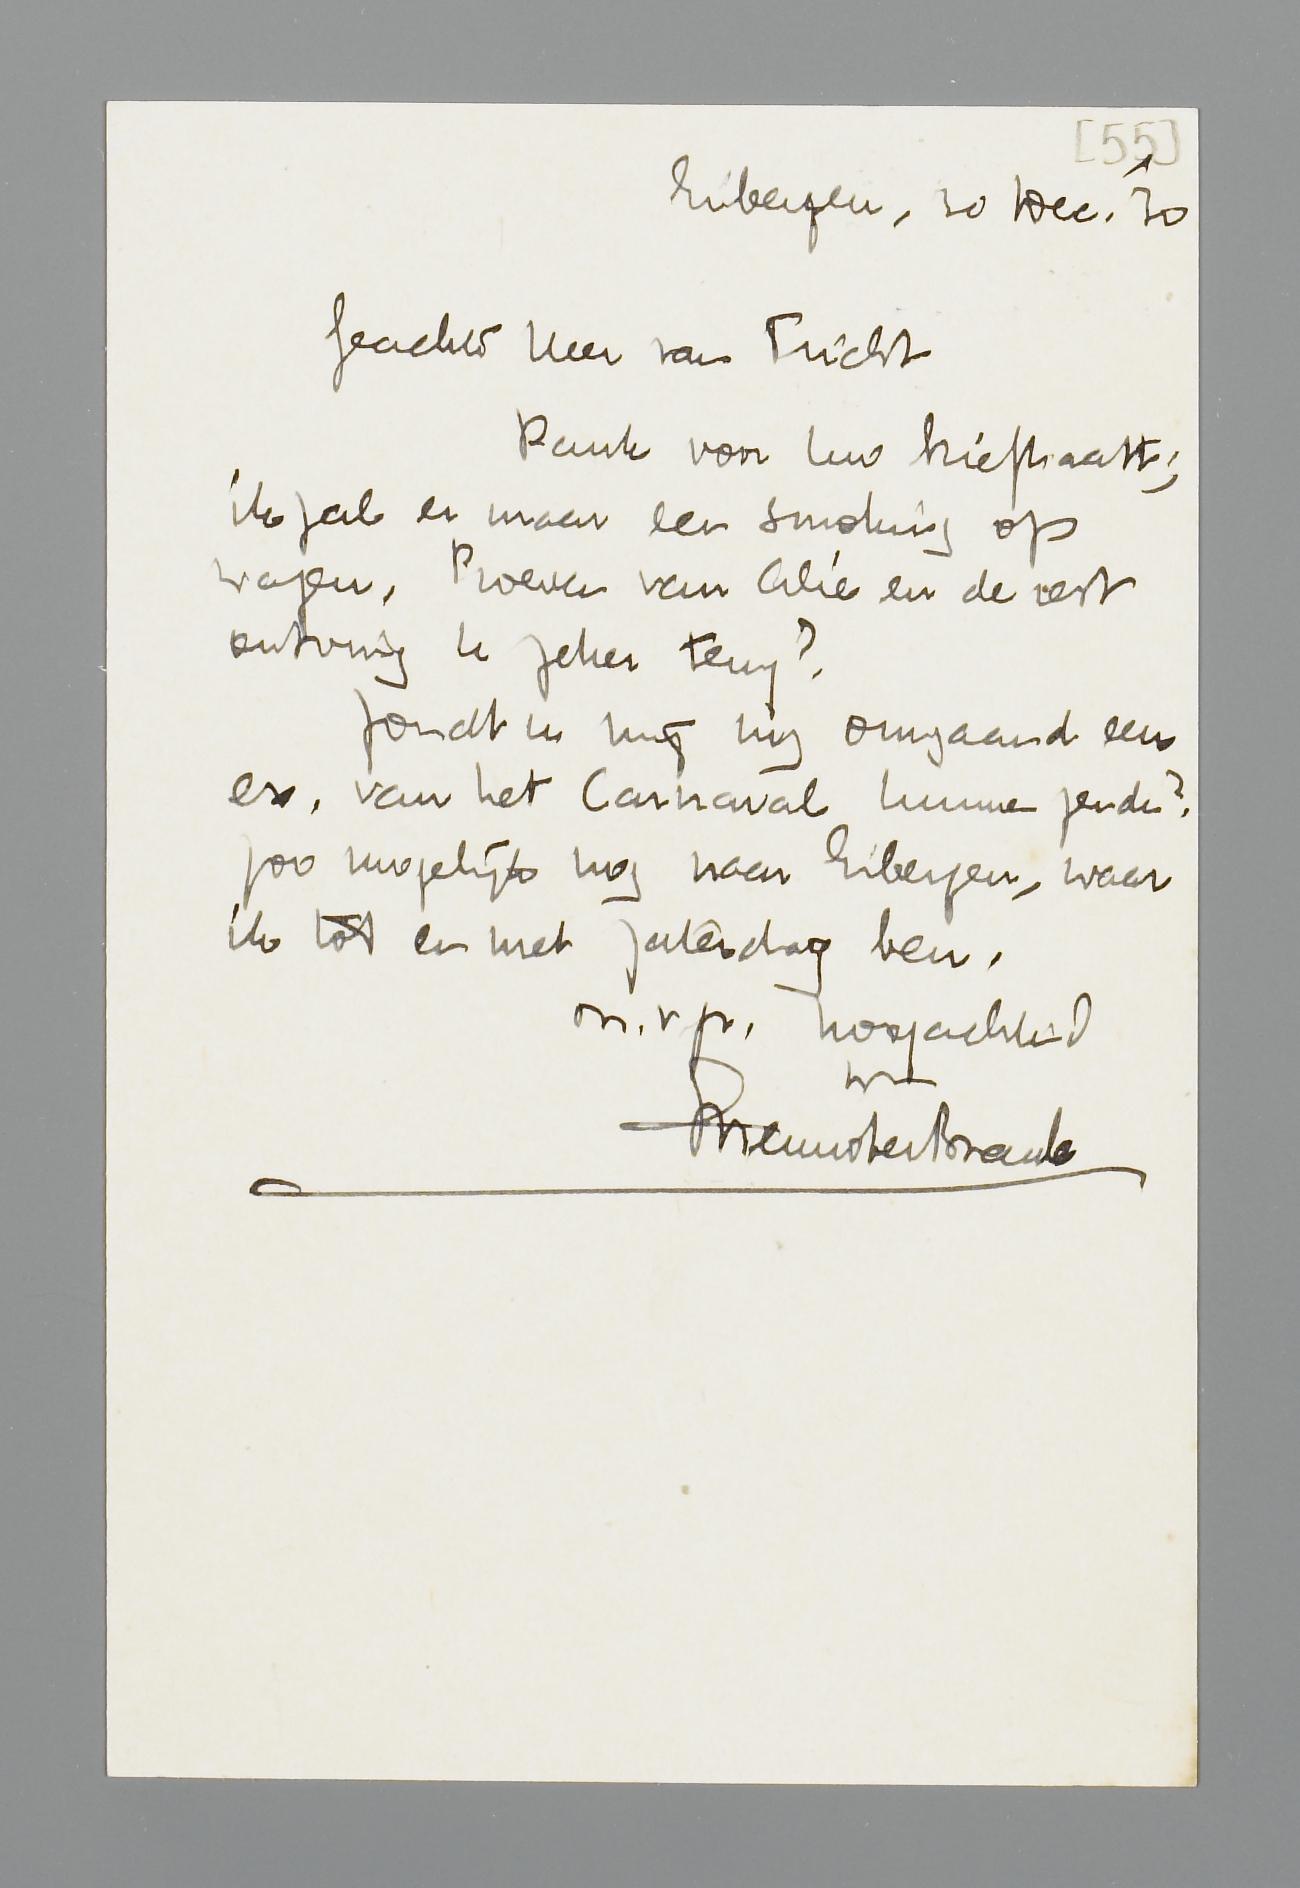 [55]
Eibergen, 30 Dec. '30
Geachte Heer van Tricht
Dank voor Uw briefkaart;
ik zal er maar een smoking op
wagen. Proeven van Clie en de rest
ontving U zeker terug?.
Zoudt U mij nog omgaand een
ex. van het Carnaval kunnen zenden?.
Zoo mogelijk nog naar Eibergen, waar
ik tot en met Zaterdag ben.
m.v.gr. hoogachtend
Uw
Menno ter Braak